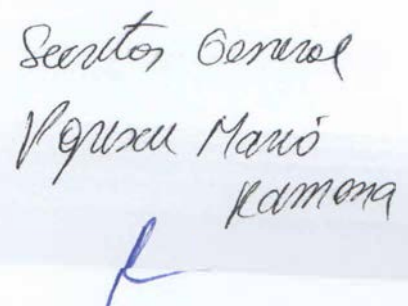 Secretar General
Popescu Maria
Ramona